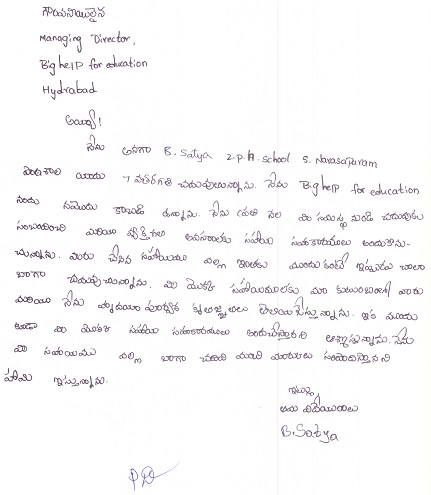 గౌరవనీయులైన
Managing Director,
Big help for education
Hydrabad
అయ్యా!
నేను అనగా B. Satya z.p.h. school S. Narasapuram
పాఠశాల యందు 7 వతరగతి చదువుచున్నాను. నేను Big help for education
నందు నమోదు కాబడి ఉన్నాను. నేను ప్రతి నెల మీ సంస్థ నుండి చదువుకు
సంబంధించి మరియు వ్యక్తిగత అవసరాలకు సహాయ సహకారములు అందుకొను-
చున్నాను. మీరు చేసిన సహాయము వల్ల ఇంతకు ముందుకంటే ఇప్పుడు చాలా
బాగా చదువుచున్నాను. మీ యొక్క సహాయములకు మా కుటుంబంలో వారు
మరియు నేను హృదయపూర్వక కృతజ్ఞతలు తెలియజేస్తున్నాను. ఇక ముందు
కూడా మీ యొక్క సహాయ సహకారములు అందుచేస్తారని ఆశిస్తున్నాను. నేను
మీ సహాయము వల్ల బాగా చదివి మంచి మార్కులు సంపాదిస్తానని
హామీ ఇస్తున్నాను.
ఇట్లు
తమ విధేయురాలు
B. Satya